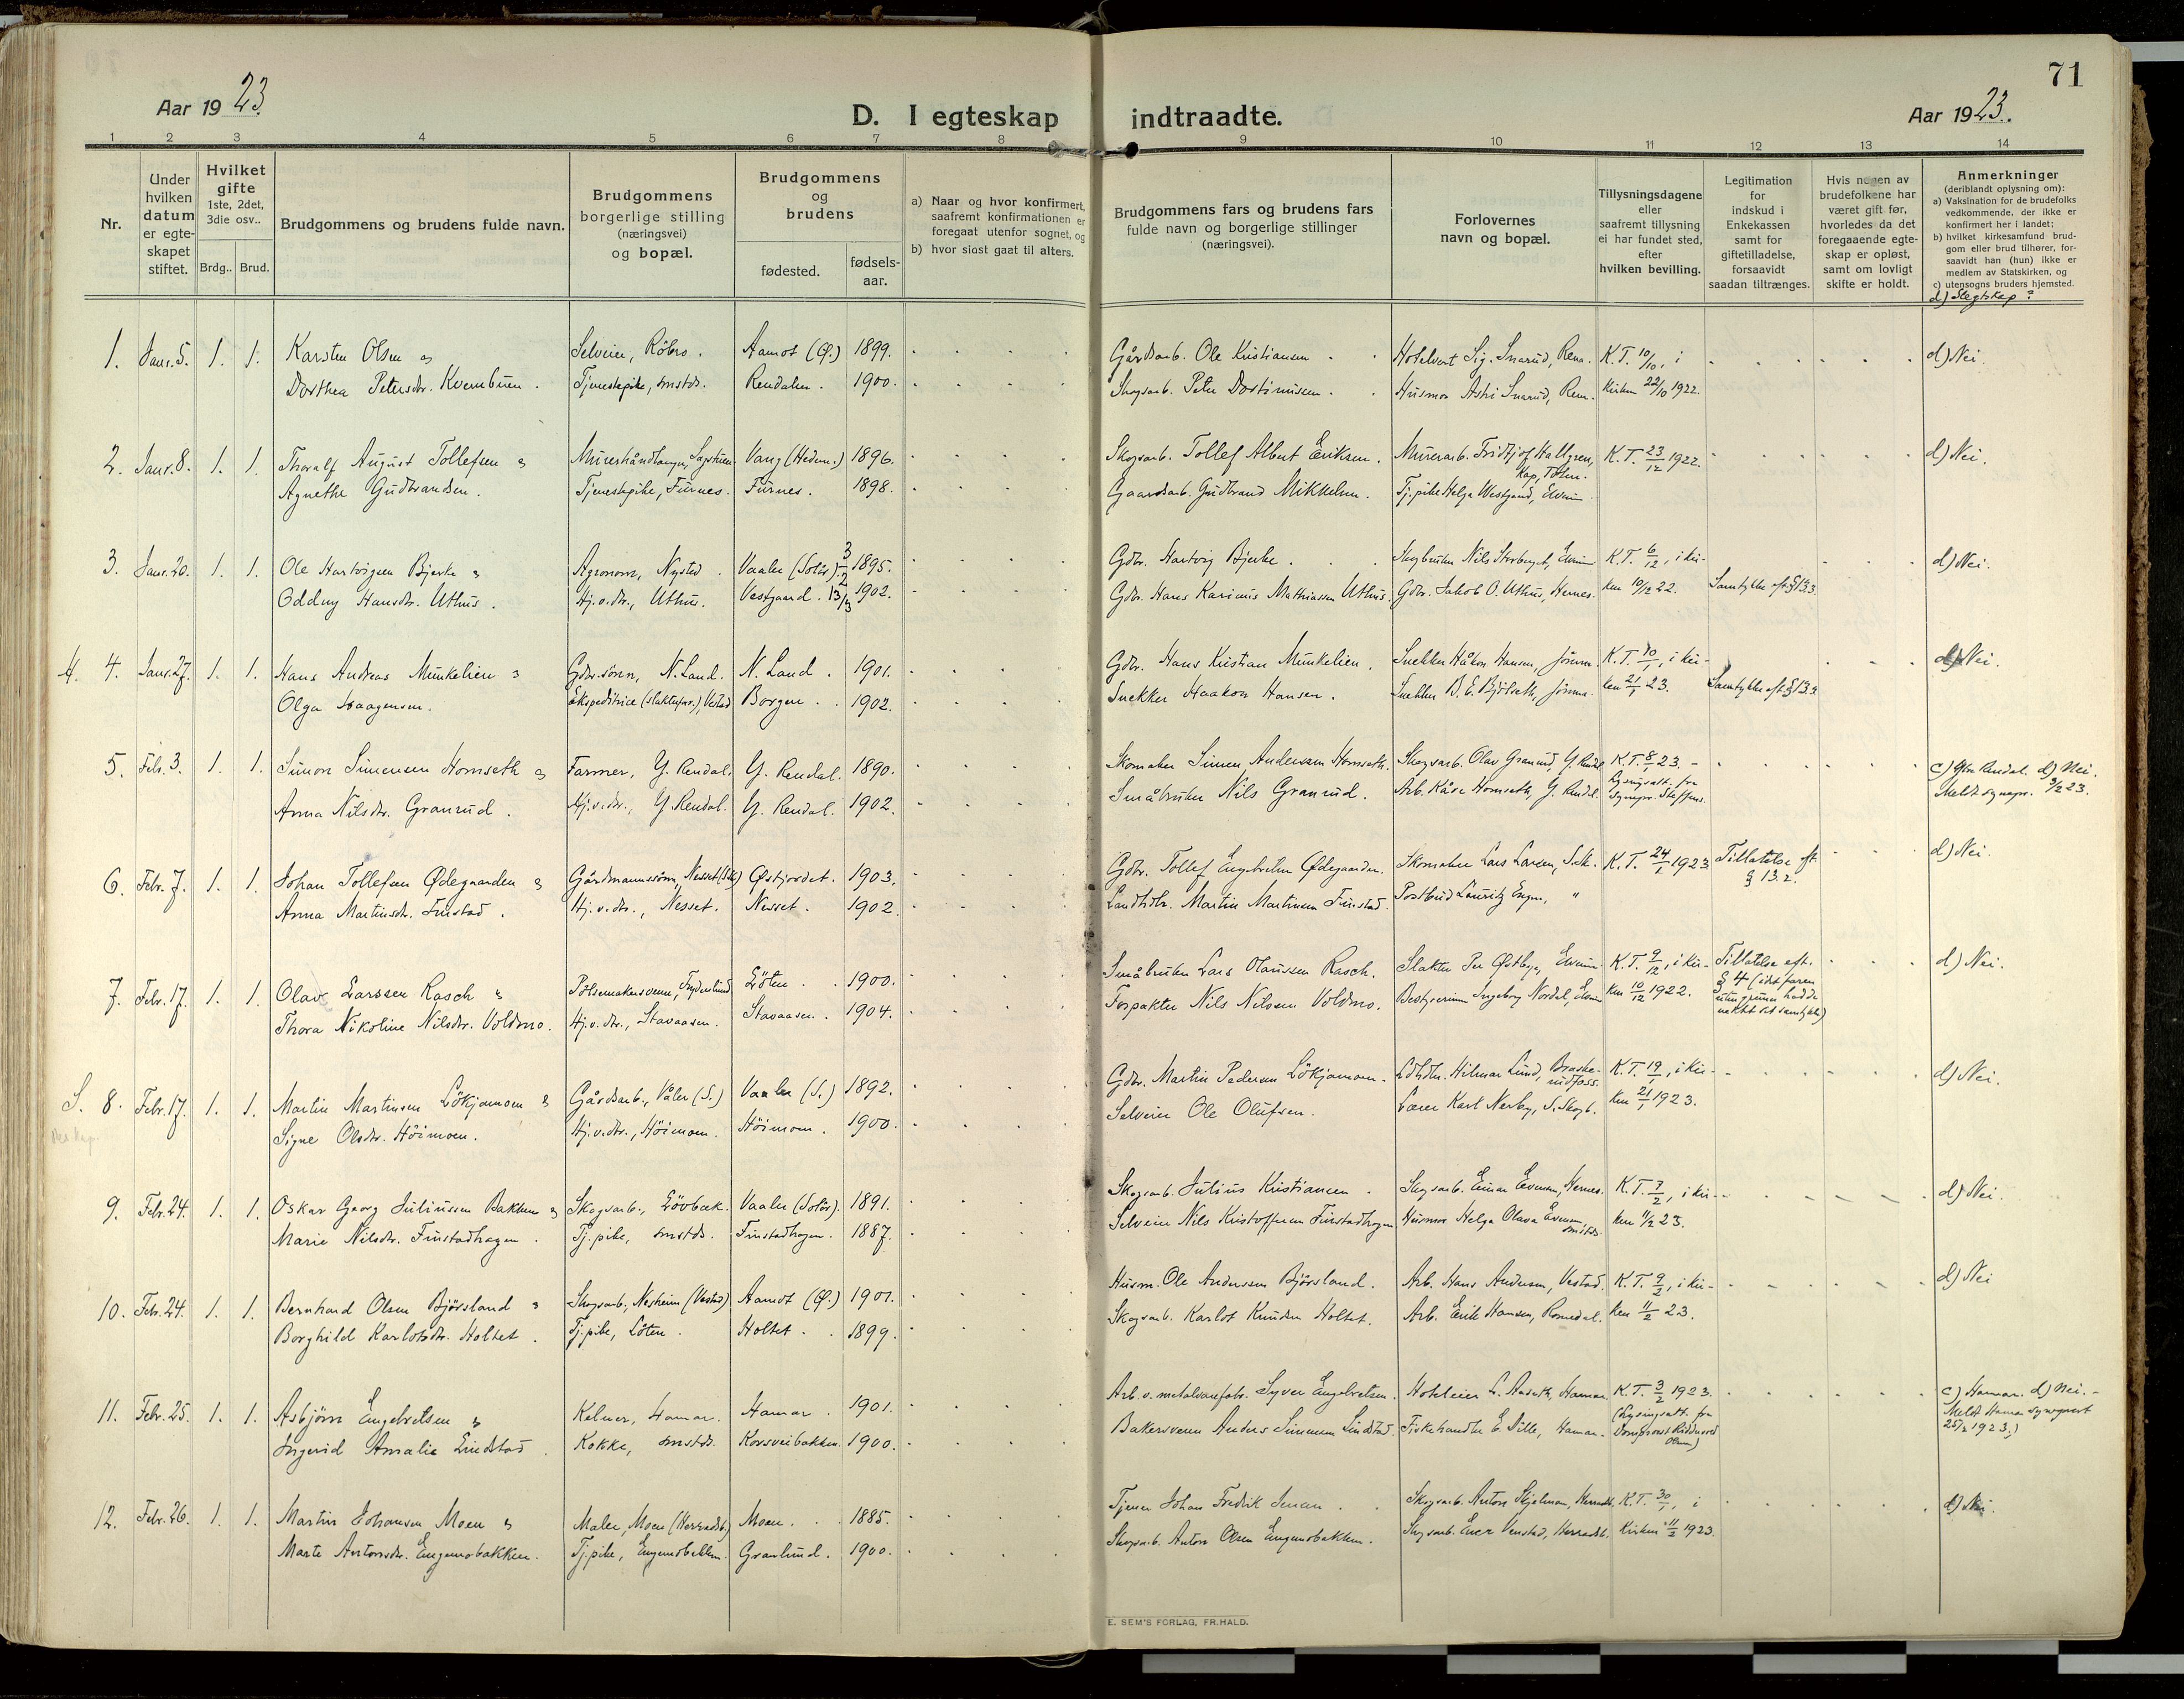 71
Aar 1923.
D. I egteskap indtraadte.
Aar 1923.
1 2 3 4 5 6 7 8 9 10 11 12 13 14
Nr.
Under
hvilken
datum
er egte-
skapet
stiftet.
Hvilket
gifte
1ste, 2det,
3die osv..
Brdg.. Brud.
Brudgommens og brudens fulde navn.
Brudgommens
borgerlige stilling
(næringsvei)
og bopæl.
Brudgommens
og
brudens
fødested.
fødsels-
aar.
a) Naar og hvor konfirmert,
saafremt konfirmationen er
foregaat utenfor sognet, og
b) hvor sidst gaat til alters.
Brudgommens fars og brudens fars
fulde navn og borgerlige stillinger
(næringsvei).
Forlovernes
navn og bopæl.
Tillysningsdagene
eller
saafremt tillysning
ei har fundet sted,
efter
hvilken bevilling.
Legitimation
for
indskud i
Enkekassen
samt for
giftetilladelse,
forsaavidt
saadan tiltrænges.
Hvis nogen av
brudefolkene har
været gift før,
hvorledes da det
foregaaende egte-
skap er opløst,
samt om lovligt
skifte er holdt.
Anmerkninger
(deriblandt oplysning om):
a) Vaksination for de brudefolks
vedkommende, der ikke er
konfirmert her i landet;
b) hvilket kirkesamfund brud-
gom eller brud tilhører, for-
saavidt han (hun) ikke er
medlem av Statskirken, og
c) utensogns bruders hjemsted.
d) Slegtskap?
1. Janr. 5. 1. 1. Karsten Olsen og Selveier, Röbro. Aamot (Ø.) 1899. Gårdsarb. Ole Kristiansen. Hotelvert Sig. Snarud, Rena. K.T. 10/10, i d) Nei.
Dorthea Petersdr. Kvernbuen. Tjenestepike, smstds. Rendalen. 1900. Skogsarb. Peter Husmor Astri Snarud, Rena. kirken 22/10 1922.
2. Janr. 8. 1. 1. Thoralf August Tollefsen og Murerhåndlanger, Vang (Hedem.) 1896. Skogsarb. Tollef Albert Eriksen. Murerarb. Fridtjof Hallgren, K.T. 23/12 1922. d) Nei.
Kap, Toten.
Agnethe Gudbrandsen. Tjenestepike, Furnes. Furnes. 1898. Gaardsarb. Gudbrand Mikkelsen. Tj.pike Helga Westgaard, Elverum.
3. Janr. 20. 1. 1. Ole Hartvigsen Bjerke og Agronom, Nysted. Vaaler (Solör) 3/2 1895. Gdbr. Hartvig Bjerke. Skogbruker Nils Storberget, Elverum K.T. 6/12, i kir- d) Nei.
Oddny Hansdr. Uthus. Hj.v.dtr., Uthus. Vestgaard. 13/3 1902. Gdbr. Hans Karinus Mathiassen Uthus. Gdbr. Jakob O. Uthus, Hernes. ken 10/12 22. Samtykke eft. § 13.3.
4. Janr. 27. 1. 1. Hans Andreas Munkelien og Gdbr.sønn, N. Land. N. Land. 1901. Gdbr. Hans Kristian Munkelien. Snekker Håkon Hansen, Jömna. K.T. 10/1, i kir- d) Nei.
Olga Haagensen. Ekspeditrice (Slakteforr.), Vestad Borgen. 1902. Snekker Haakon Hansen. Snekker B. E. Björseth, Jömna. ken 21/1 23. Samtykke eft. § 13.2
5. Febr. 3. 1. 1. Simon Simensen Homseth og Farmer, Y. Rendal. Y. Rendal. 1890. Skomaker Simen Anderssen Homseth. Skogsarb. Olav Granrud, Y. Rendal K.T. 8/1 23. c) Ytre Rendal. d) Nei.
Anna Nilsdr. Granrud. Hj.v.dtr., Y. Rendal. Y. Rendal. 1902. Småbruker Nils Granrud. Arb. Kåre Homseth, Y. Rendal. Lysingsatt. fra Sognepr. Steffens. Meldt sognepr. 3/2 23.
6. Febr. 7. 1. 1. Johan Tollefsen Ødegaarden og Gårdmannssønn, Nesset Østjordet. 1903. Gdbr. Tollef Engebretsen Ødegaarden. Skomaker Lars Larsen, K.T. 24/1 1923 Tillatelse eft. § 13.2. d) Nei.
Anna Martinsdr. Finstad. Hj.v.dtr., Nesset. Nesset. 1902. Landhdlr. Martin Martinsen Finstad. Postbud Lauritz Engen, "
7. Febr. 17. 1. 1. Olav Larssen Rasch og Pölsemakersvenn, Löten. 1900. Småbruker Lars Olaussen Rasch. Slakter Per Østbye, Elverum K.T. 9/12, i kir- Tillatelse eft. § 4 (idet faren uten grunn hadde nektet sit samtykke) d) Nei.
Thora Nikoline Nilsdtr. Voldmo. Hj.v.dtr., Stavaasen. Stavaasen. 1904. Forpakter Nils Nilssen Voldmo. Bestyrerinne Ingeborg Nordal, Elverum ken 10/12 1922.
S. 8. Febr. 17. 1. 1. Martin Martinsen Lökjamoen og Gårdsarb., Våler (S.) Vaaler (S.) 1892. Gdbr. Martin Pedersen Lökjamoen. Ldhdlr. Hilmar Lund, Braske- K.T. 19/1, i kir- d) Nei.
reidfoss.
Signe Olsdr. Höimoen. Hj.v.dtr., Höimoen. Höimoen. 1900. Selveier Ole Olufsen. Lærer Karl Nerby, S. Skogb. ken 21/1 1923.
9. Febr. 24. 1. 1. Oskar Georg Juliussen Bakken og Skogsarb., Lövbæk. Vaaler (Solör). 1891. Skogsarb. Julius Kristiansen. Skogsarb. Einar Evensen, Hernes. K.T. 7/2, i kir- d) Nei.
Marie Nilsdtr. Finstadhagen. Tj.pike, smstds. Finstadhagen. 1887. Selveier Nils Kristoffersen Finstadhagen Husmor Helga Olava Evensen, smstds. ken 11/2 23.
10. Febr. 24. 1. 1. Bernhard Olsen Björsland og Skogsarb., Nesheim (Vestad) Aamot (Ø.) 1901. Husm. Ole Anderssen Björsland. Arb. Hans Andersen, Vestad. K.T. 9/2, i kir- d) Nei
Borghild Karlotsdtr. Holtet. Tj.pike, Löten. Holtet. 1899. Skogsarb. Karlot Knudsen Holtet. Arb. Erik Hansen, Romedal. ken 11/2 23.
11. Febr. 25. 1. 1. Asbjörn Engebretsen og Kelner, Hamar. Hamar. 1901. Arb. v. metalvarefabr. Syver Engebretsen. Hoteleier L. Hamar K.T. 3/2 1923. c) Hamar. d) Nei.
Ingerid Amalie Lindstad. Kokke, smstds. Korsveibakken. 1900. Bakersvenn Anders Simensen Lindstad. Fiskehandler E. Dille, Hamar. (Lysingsatt. fra Domprost Olsen) Meldt Hamar sogneprest 25/2 1923.)
12. Febr. 26. 1. 1. Martin Johansen Moen og Maler, Moen (Herradsb.) Moen. 1885. Tjener Johan Fredrik Jensen. Skogsarb. Anton Skjelman, Herradsb. K.T. 30/1, i d) Nei.
Marte Antonsdr. Engemobakken. Tj.pike, Engemobakken. Granlund. 1900. Skogsarb. Anton Olsen Engemobakken. Skogsarb. Venstad, Herradsb. kirken 11/2 1923.
E. SEM'S FORLAG, FR.HALD.